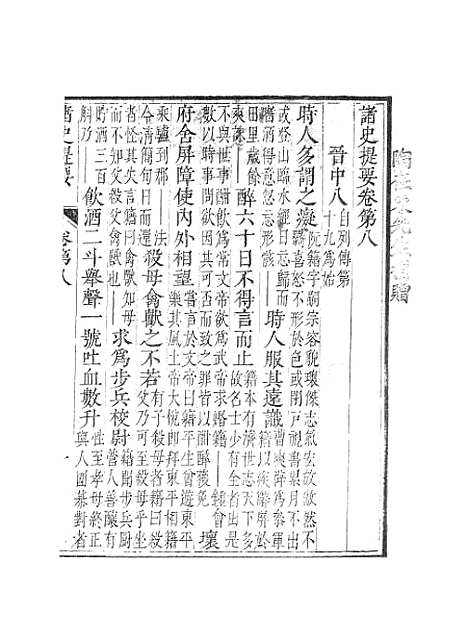 諸史提要卷第八
晉中八 自列傳第十九爲始
時人多謂之癡 阮籍字嗣宗容貌瓌傑志氣宏放傲然不
羈喜怒不形於色或閉戶視書累月不出
或登山臨水經日忘歸而
嗜酒得意忽忘形骸 時人服其遠識 曹爽辟爲參軍
籍以疾辭屏於
田里歲餘
爽誅 醉六十日不得言而止 籍本有濟世志天下多
故名士少有全者由是
不與世事酣飲爲常文帝欲爲武帝求婚籍 鍾會
數以時事問欲因其可否而致之罪皆以酣醉獲免 壞
府舍屏障使內外相望 嘗言於文帝曰籍平生曾遊東平
樂其風土帝大悅即拜東平相籍
乘驢到郡 法
令清簡旬日而還 殺母禽獸之不若 有子殺母者籍曰
殺父乃可至殺母乎坐
者怪其失言籍曰禽獸知母
而不知父殺父禽獸也 求爲步兵校尉 籍聞步兵廚
營人善釀有
貯酒三百
斛乃 飲酒二斗舉聲一號吐血數升 性至孝母終正
與人圍棊對者
諸史提要 卷第八 一